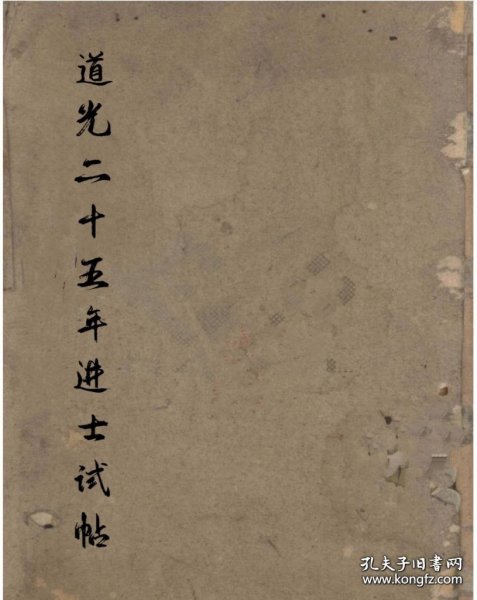 道光二十五年进士试帖
孔夫子旧书网
www.kongfz.com